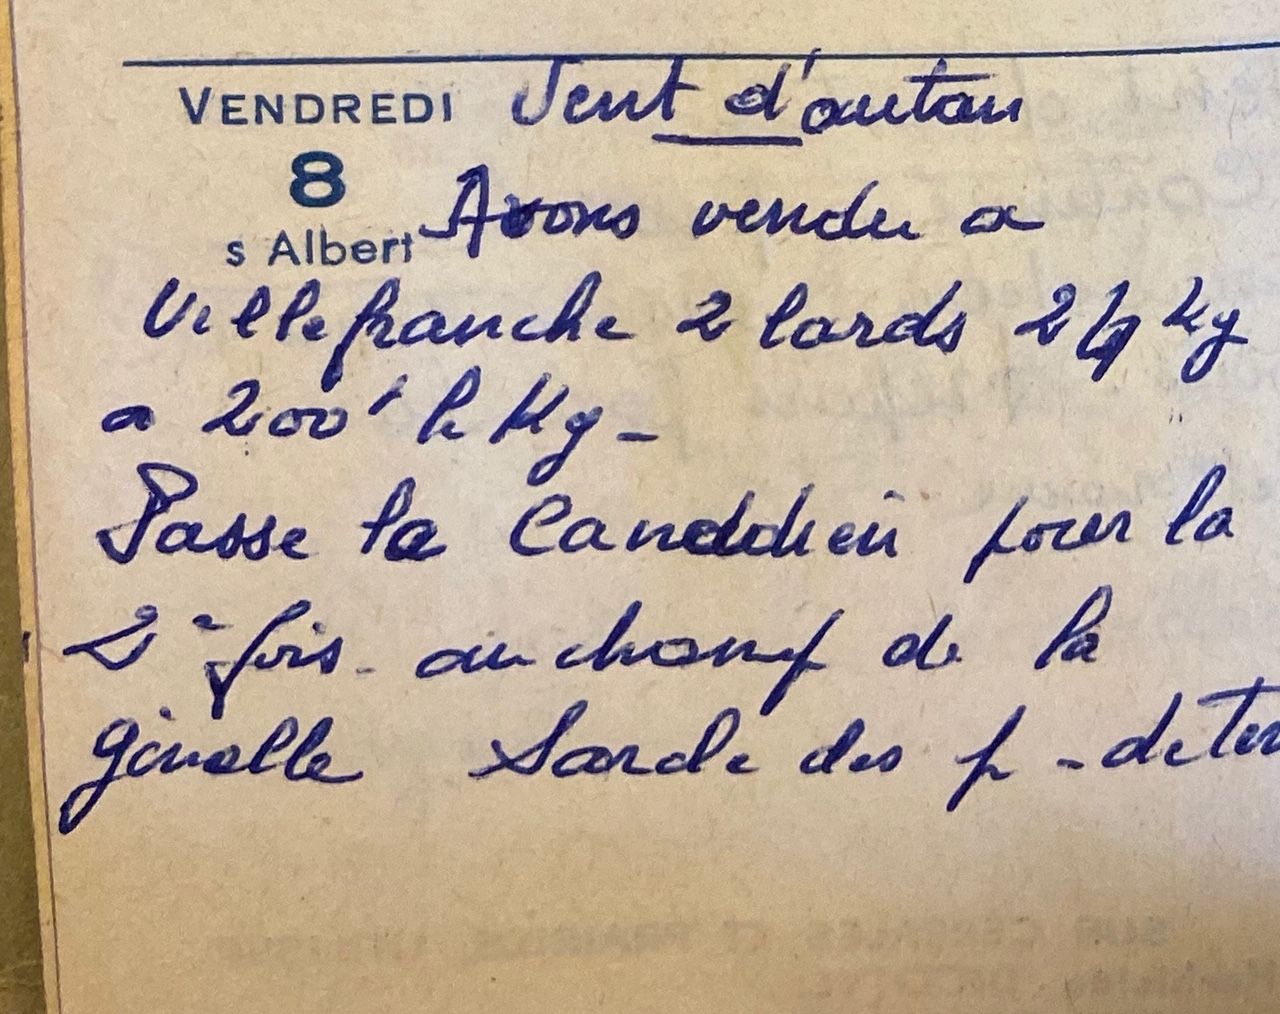 VENDREDI Vent d'autan
8
s Albert Avons vendu a
Villefranche 2 lards 24 Kg
a 200' le Kg -
Passe le Canadien pour la
2e fois - au champ de la
Ginelle Sarcle des p - de ter